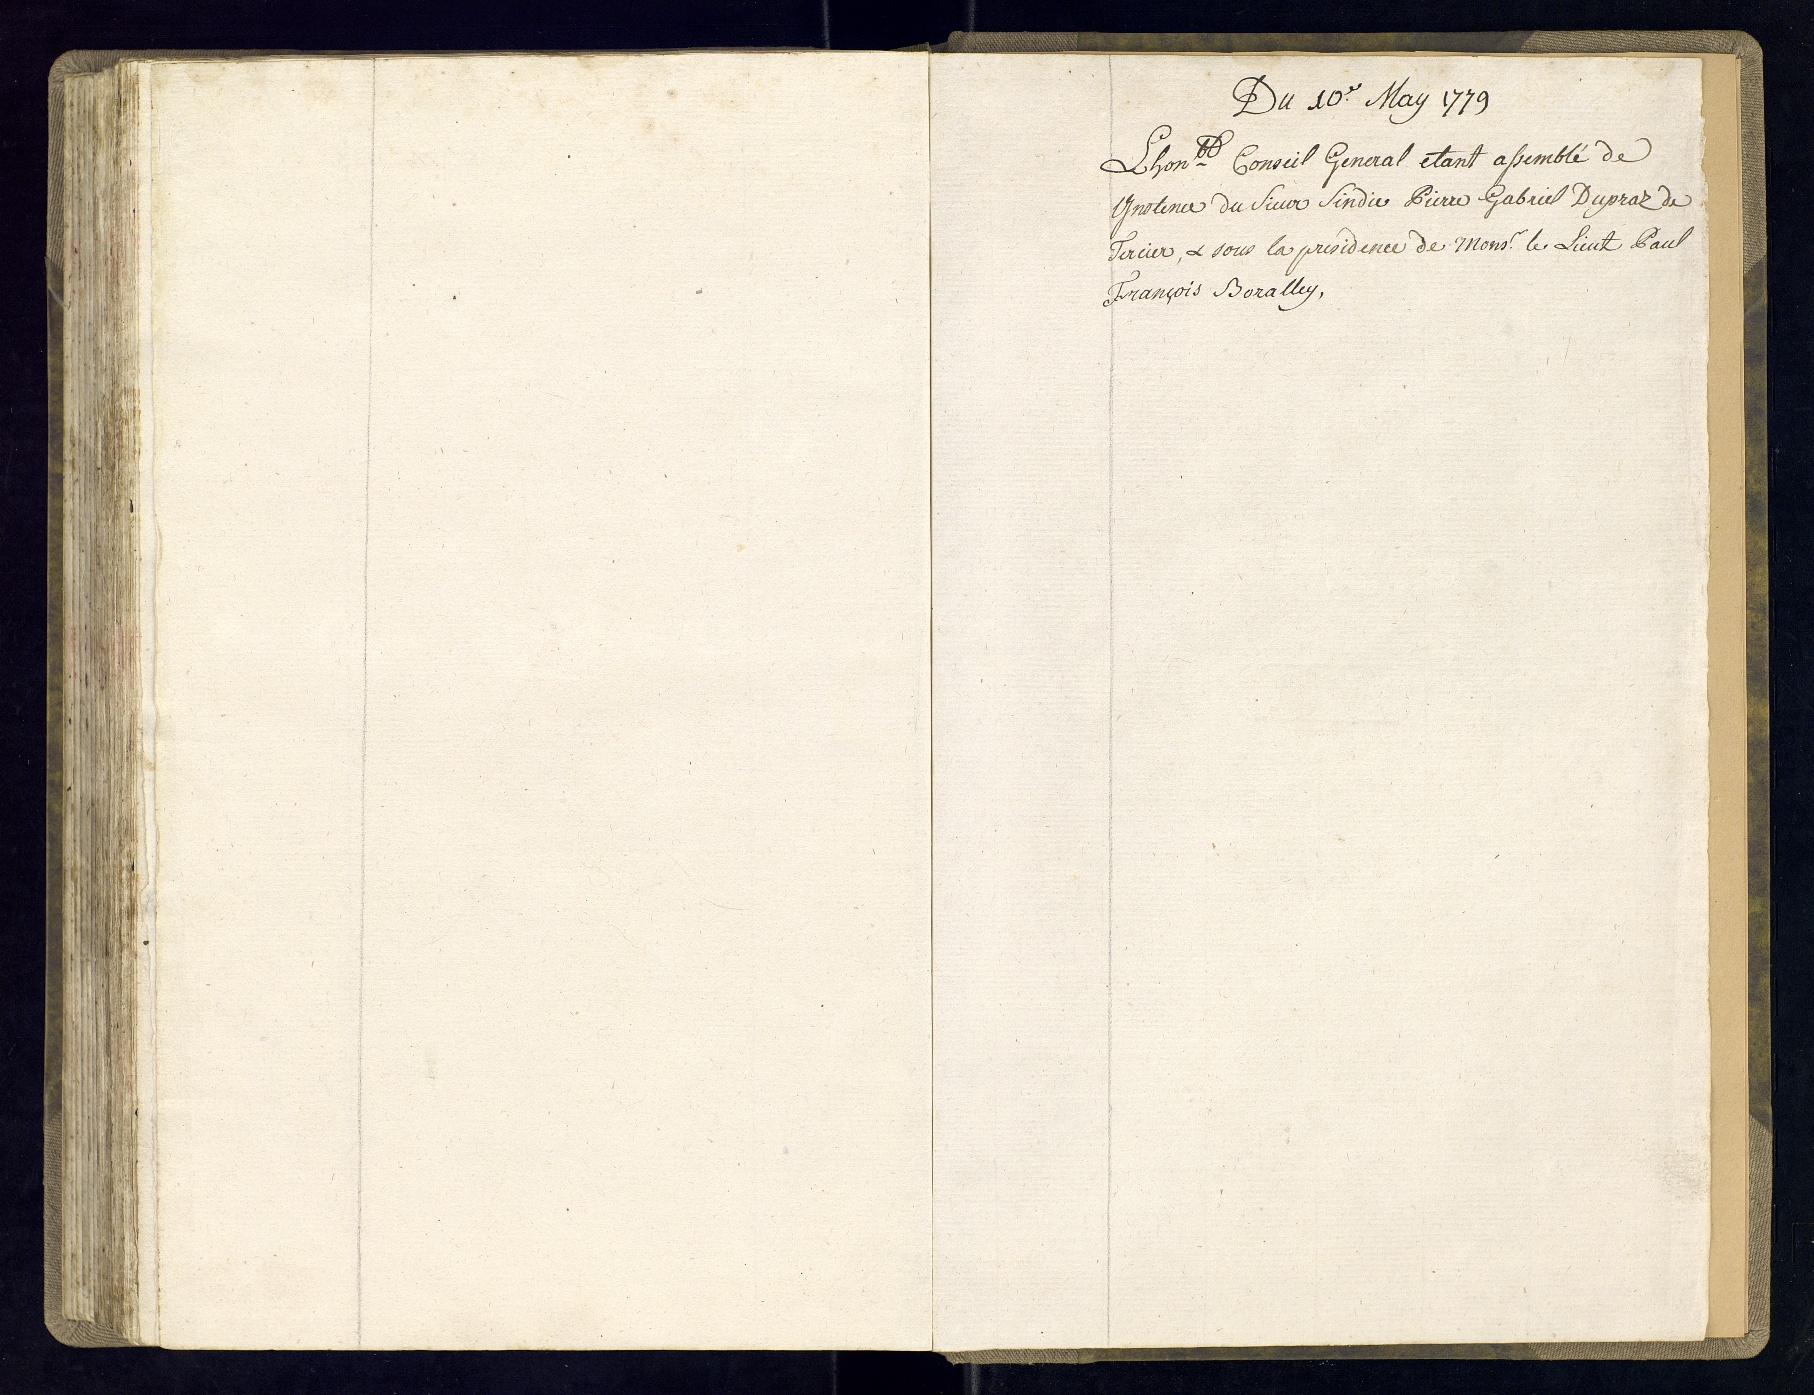 Du 10.e May 1779
Lhon.ble Conseil General etant assemblé de
Ynstence du Sieur Sindic Pierre Gabriel Dupraz de
Tercier, & sous la presidence de Mons.r le Lieut Paul
François Boralley,